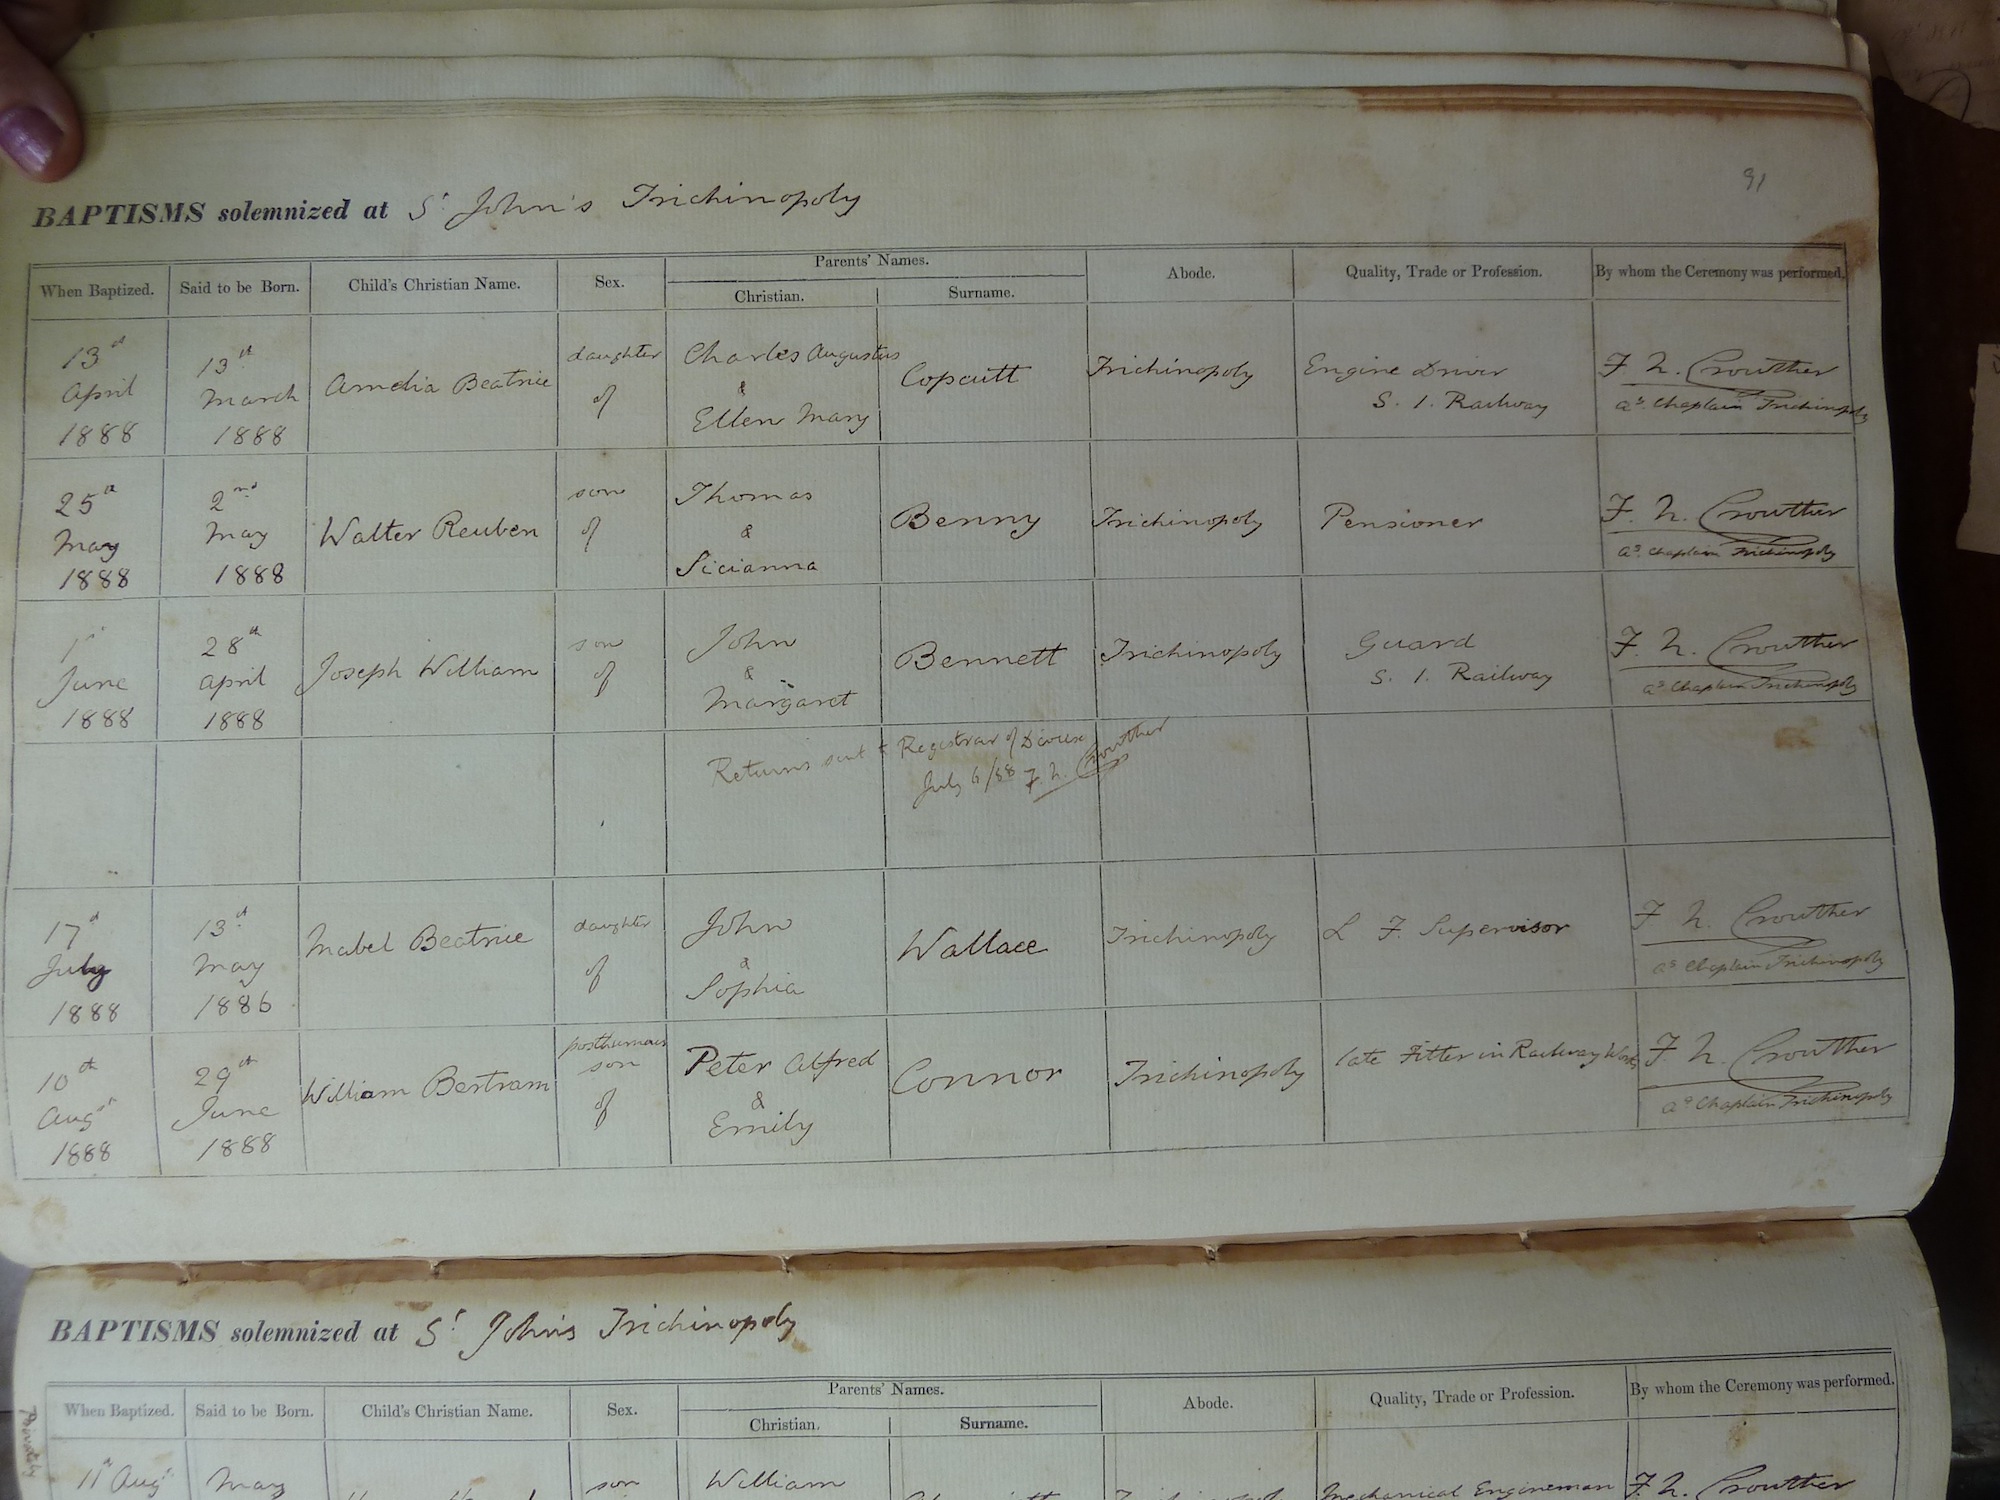 91
BAPTISMS solemnized at St John's Trichinopoly
When Baptized. Said to be Born. Child's Christian Name. Sex. Parents' Names. Abode. Quality, Trade or Profession. By whom the Ceremony was performed.
Christian. Surname.
13th April 1888 13th March 1888 Amelia Beatrice daughter of Charles Augustus & Ellen Mary Copcutt Trichinopoly Engine Driver S. I. Railway F. N. Crowther as Chaplain Trichinopoly
25th May 1888 2nd May 1888 Walter Reuben son of Thomas & Sicianna Benny Trichinopoly Pensioner F. N. Crowther as Chaplain Trichinopoly
1st June 1888 28th April 1888 Joseph William son of John & Margaret Bennett Trichinopoly Guard S. I. Railway F. N. Crowther as Chaplain Trichinopoly
Returns sent to Registrar of Diocese
July 6/88 F. N. Crowther
17th July 1888 13th May 1886 Mabel Beatrice daughter of John & Sophia Wallace Trichinopoly L F. Supervisor F N. Crowther as Chaplain Trichinopoly
10th Augst 1888 29th June 1888 William Bertram posthumous son of Peter Alfred & Emily Connor Trichinopoly late Fitter in Railway Works F. N. Crowther as Chaplain Trichinopoly
BAPTISMS solemnized at St John's Trichinopoly
When Baptized. Said to be Born. Child's Christian Name. Sex. Parents' Names. Abode. Quality, Trade or Profession. By whom the Ceremony was performed.
Christian. Surname.
11th Augst May son William Mechanical Engineman F. N. Crowther